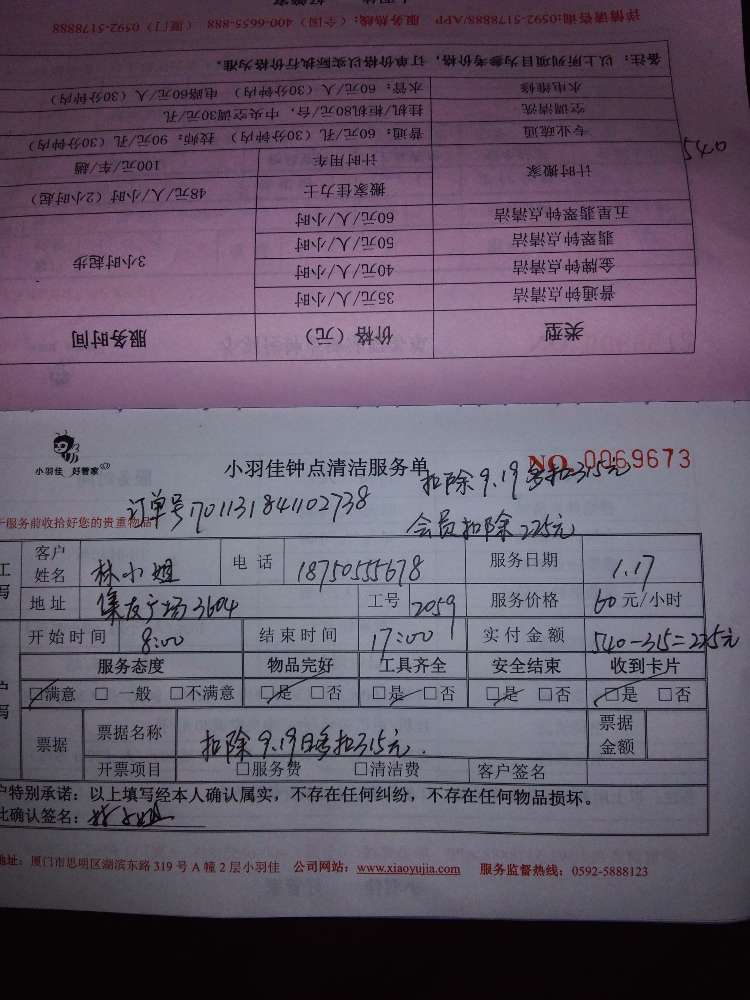 详情请咨询:0592-5178888/APP 服务热线:(全国)400-6655-888 (厦门)0592-5178888
备注:以上所列项目为参考价格,订单价格以实际执行价格为准.
水电维修 水管:60元/人(30分钟内) 电路60元/人(30分钟内)
空调清洗 挂机/柜机80元/台,中央空调30元/孔
专业疏通 普通:60元/孔(30分钟内) 技师:90元/孔(30分钟内)
计时搬家 计时用车 100元/车/趟
搬家佳力士 48元/人/小时(2小时起)
五星翡翠钟点清洁 60元/人/小时 3小时起步
翡翠钟点清洁 50元/人/小时
金牌钟点清洁 40元/人/小时
普通钟点清洁 35元/人/小时
类型 价格(元) 服务时间
540
小羽佳 好管家
小羽佳钟点清洁服务单
NO 0069673
扣除9.19多扣315元
订单号1701131841102738
会员扣除225元
于服务前收拾好您的贵重物品
客户姓名 林小姐 电话 18750555678 服务日期 1.17
地址 集友广场3604 工号 2059 服务价格 60元/小时
开始时间 8:00 结束时间 17:00 实付金额 540-315=225元
服务态度 物品完好 工具齐全 安全结束 收到卡片
□满意 □一般 □不满意 □是 □否 □是 □否 □是 □否 □是 □否
票据 票据名称 扣除9.19日多扣315元. 票据金额
开票项目 □服务费 □清洁费 客户签名
户特别承诺:以上填写经本人确认属实,不存在任何纠纷,不存在任何物品损坏。
此确认签名:林小姐
地址:厦门市思明区湖滨东路319号A幢2层小羽佳 公司网站:www.xiaoyujia.com 服务监督热线:0592-5888123